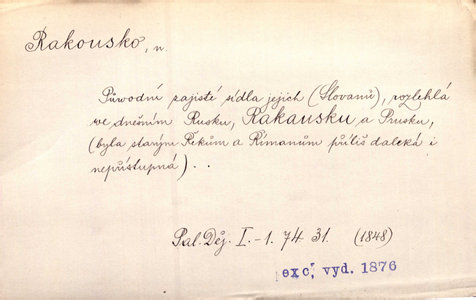 Rakousko, n.
Původní zajisté sídla jejich (Slovanů), rozlehlá
we dnešním Rusku, Rakausku a Prusku,
(byla starým Řekům a Římanům příliš daleká i
nepřístupná) . .
Pal. Děj. I.-1. 74 31. (1848)
exc. vyd. 1876